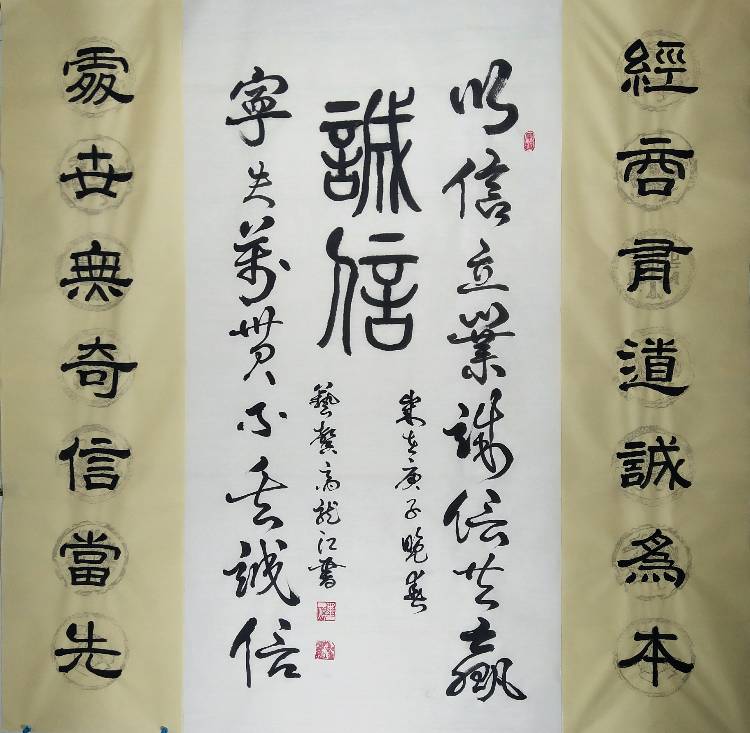 經商有道誠為本
以信立業誠信共贏
誠信
歲在庚子晚春
藝高龍江書
寧失萬貫不丟誠信
處世無奇信當先